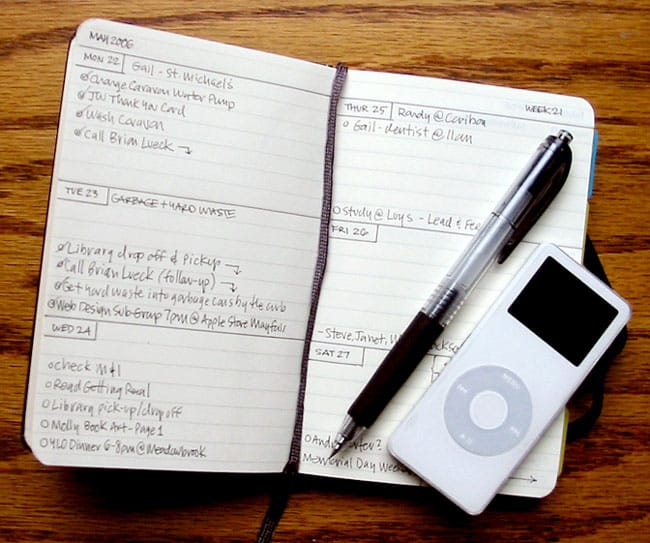 MAY 2006
MON 22
Gail - St. Michael's
Change Caravan Water Pump
JW Thank You Card
Wash Caravan
Call Brian Lueck
TUE 23
GARBAGE + YARD WASTE
Library drop off & pickup
Call Brian Lueck (follow-up)
Get yard waste into garbage cans by the curb
Web Design Sub-Group 7pm @ Apple Store Mayfair
WED 24
check
Read Getting Real
Library pick-up/drop off
Molly Book Art - Page 1
YLO Dinner 6-8pm @ Meadowbrook
THUR 25
Randy @ Caribou
WEEK 21
Gail - dentist @ 11am
Study @ Luys - Lead &
FRI 26
- Steve, Janet,
SAT 27
Memorial Day
MENU